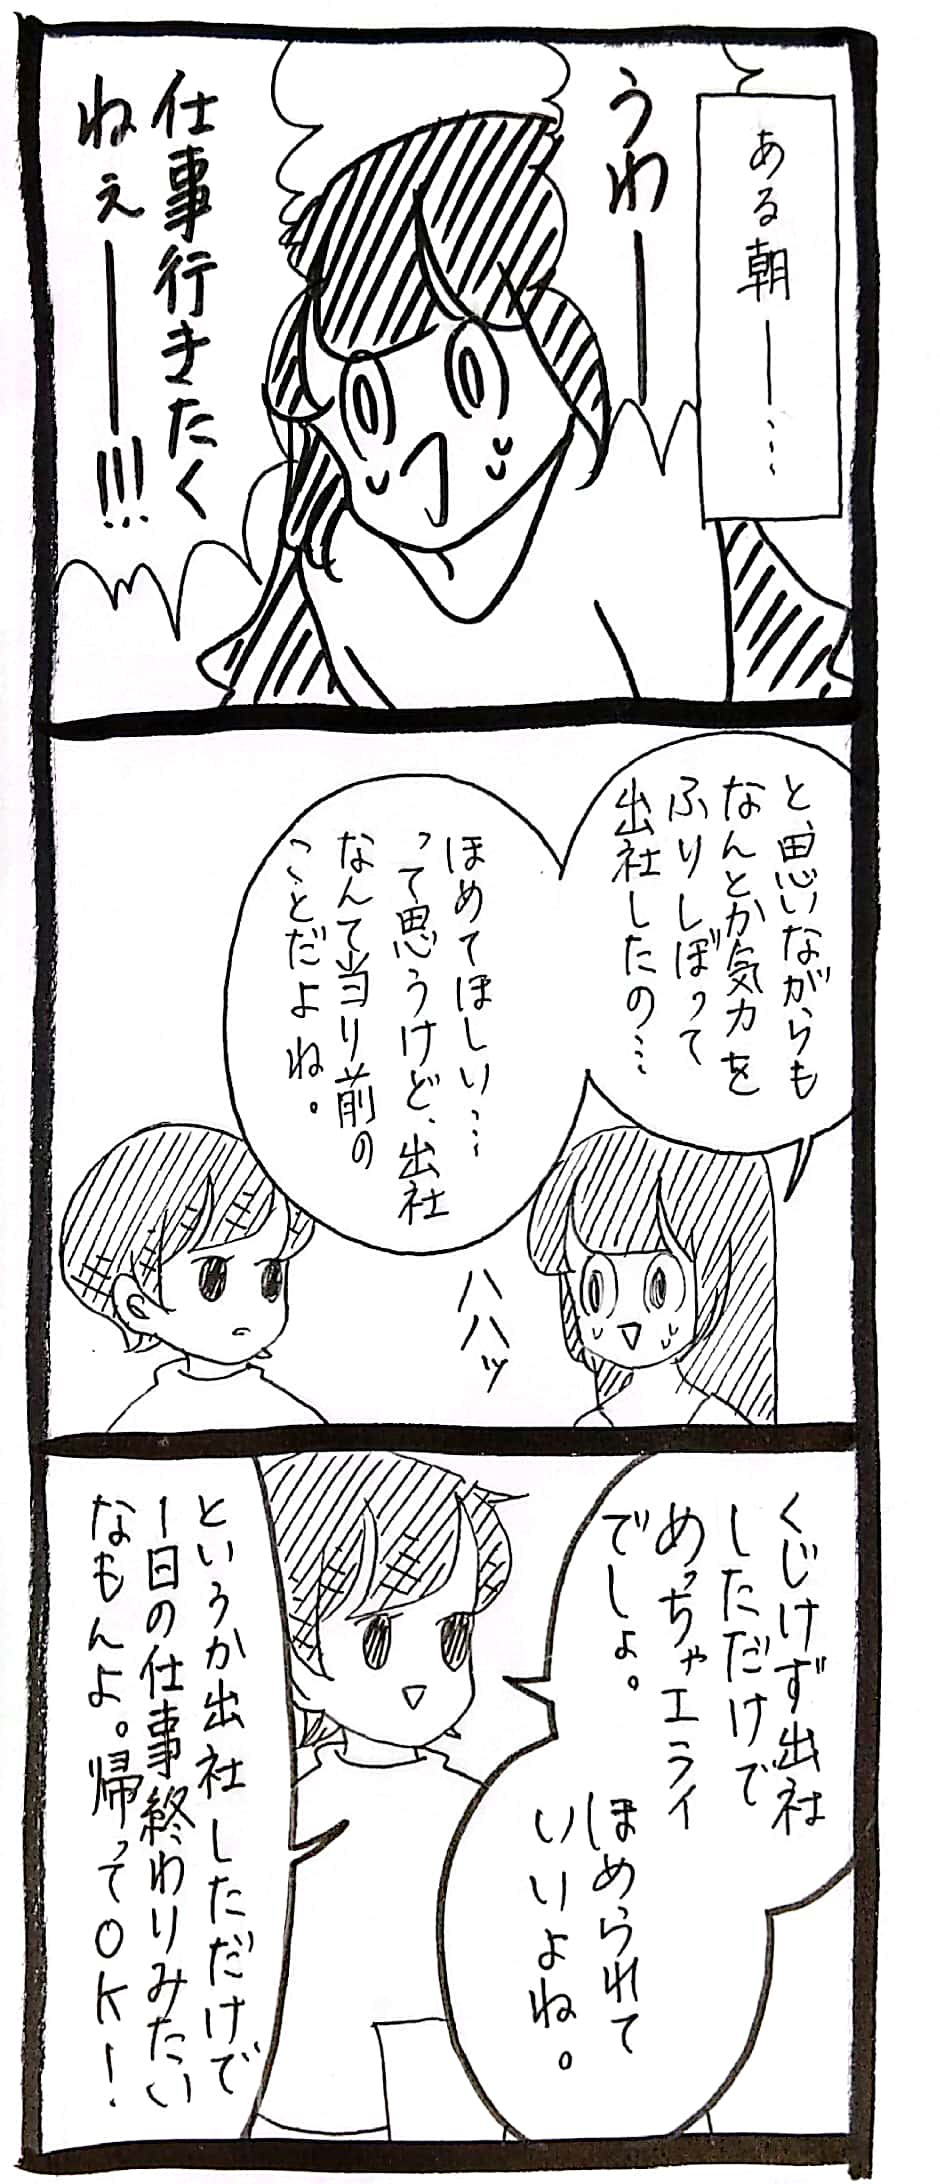 ある朝──…
うわ──
仕事行きたく
ねぇ──!!!
と、思いながらも
なんとか気力を
ふりしぼって
出社したの…
ほめてほしい…
って思うけど、出社
なんて当り前の
ことだよね。
ハハッ
くじけず出社
しただけで
めっちゃエライ
でしょ。
ほめられて
いいよね。
というか出社しただけで
一日の仕事終わりみたい
なもんよ。帰ってOK!